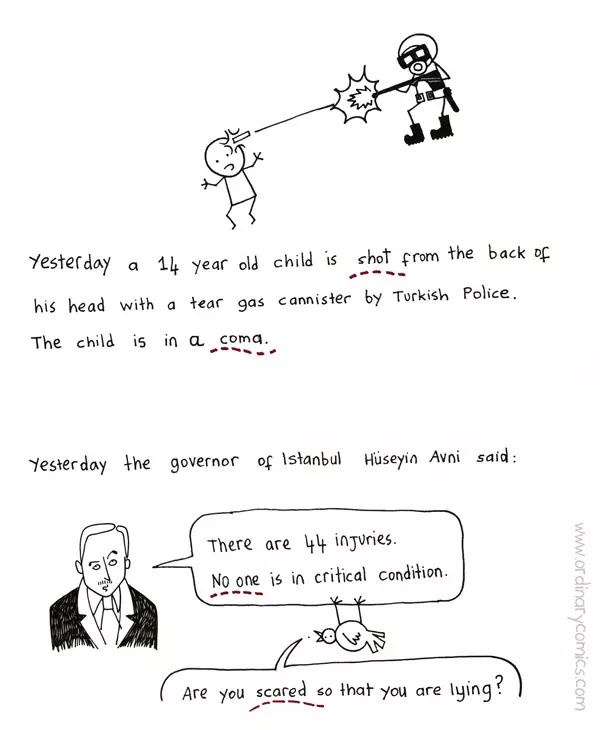 Yesterday a 14 year old child is shot from the back of
his head with a tear gas cannister by Turkish Police.
The child is in a coma.
Yesterday the governor of Istanbul Hüseyin Avni said:
There are 44 injuries.
No one is in critical condition.
Are you scared so that you are lying?
www.ordinarycomics.com